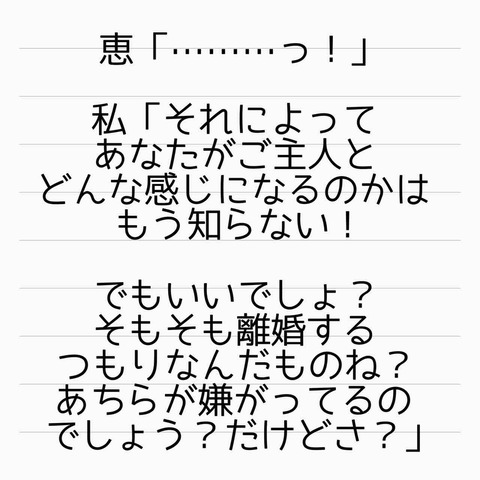 恵「………っ！」
私「それによって
あなたがご主人と
どんな感じになるのかは
もう知らない！
でもいいでしょ？
そもそも離婚する
つもりなんだものね？
あちらが嫌がってるの
でしょう？だけどさ？」